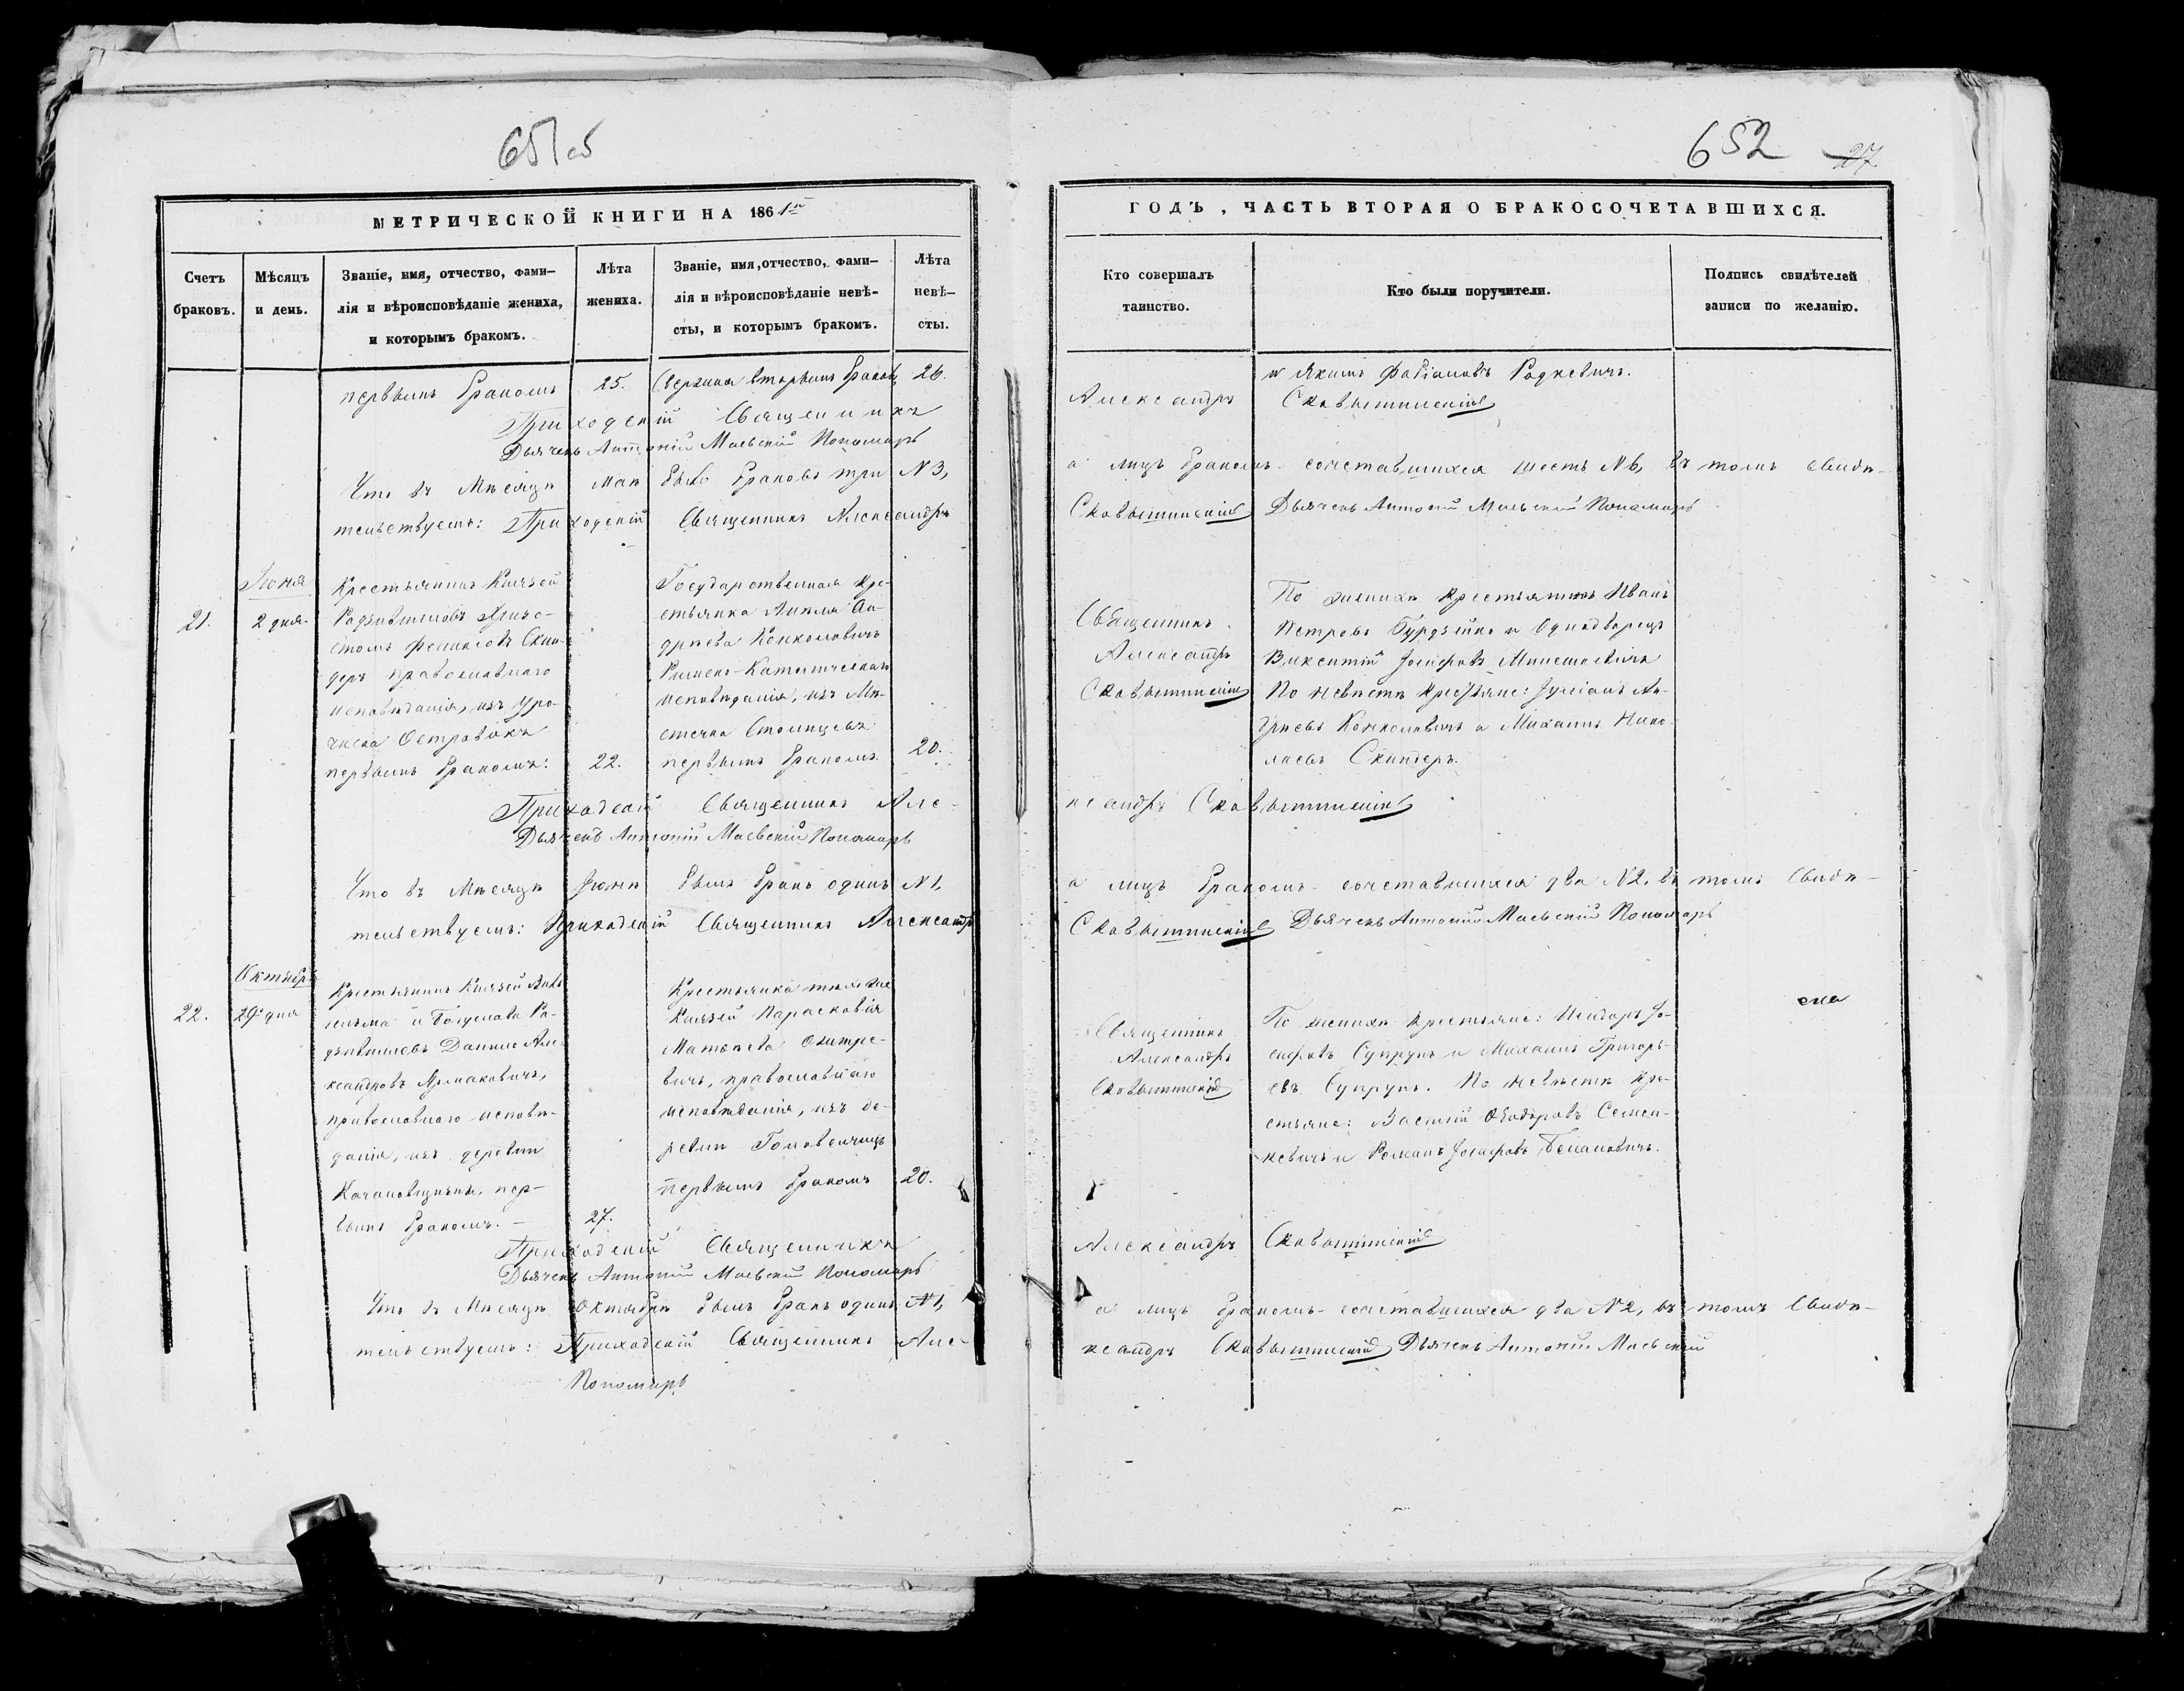 651 об
652 27
МЕТРИЧЕСКОЙ КНИГИ НА 1861й
ГОДЪ, ЧАСТЬ ВТОРАЯ О БРАКОСОЧЕТАВШИХСЯ.
Счетъ
браковъ.
Мѣсяцъ
и день.
Званіе, имя, отчество, фами-
лія и вѣроисповѣданіе жениха,
и которымъ бракомъ.
Лѣта
жениха.
Званіе, имя, отчество, фами-
лія и вѣроисповѣданіе невѣ-
сты, и которымъ бракомъ.
Лѣта
невѣ-
сты.
Кто совершалъ
таинство.
Кто были поручители.
Подпись свидѣтелей
записи по желанію.
первымъ бракомъ 25. вторымъ бракомъ 26.
и Якимъ Фабіановъ Радкевичъ.
Приходскій Священникъ Александръ Сковытинскій
Дьячекъ Антоній Маевскій Пономарь
Что въ Мѣсяцѣ Маѣ было браковъ три №3, а лицъ бракомъ сочетавшихся шесть №6, въ томъ свидѣ-
тельствуемъ: Приходскій Священникъ Александръ Сковытинскій Дьячекъ Антоній Маевскій Пономарь
21.
Іюня
2 дня.
Крестьянинъ Князей
Радзивиловъ
Феликсовъ Скин-
деръ православнаго
исповѣданія, изъ уро-
чиска Островокъ
первымъ бракомъ:
22.
Государственная кре-
стьянка Анеля Ан-
дреева
Римско-Католическаго
исповѣданія, изъ Мѣ-
стечка Столпцевъ
первымъ бракомъ
20.
Священникъ
Александръ
Сковытинскій
По женихѣ крестьянинъ Иванъ
Петровъ Бурдейко и Однодворецъ
Викентій Іосифовъ
По невѣстѣ крестьяне: Іуліанъ Ан-
дреевъ и Михаилъ Нико-
лаевъ Скиндеръ.
Приходскій Священникъ Александръ Сковытинскій
Дьячекъ Антоній Маевскій Пономарь
Что въ Мѣсяцѣ Іюнѣ былъ бракъ одинъ №1, а лицъ бракомъ сочетавшихся два №2, въ томъ свидѣ-
тельствуемъ: Приходскій Священникъ Александръ Сковытинскій Дьячекъ Антоній Маевскій Пономарь
22.
Октября
29 дня
Крестьянинъ Князей Виль-
гельма и Богуслава Ра-
дзивиловъ Даніилъ Але-
ксандровъ Ярмаковичъ,
православнаго исповѣ-
данія, изъ деревни
первымъ бракомъ.
27.
Крестьянка тѣхъ же
Князей Параскевія
Матвѣева
православнаго
исповѣданія, изъ де-
ревни
первымъ бракомъ
20.
Священникъ
Александръ
Сковытинскій
По женихѣ крестьяне: Исидоръ Іо-
сифовъ Супрунъ и Михаилъ Григорь-
евъ Супрунъ. По невѣстѣ кре-
стьяне: Василій Ѳеодоровъ Семен-
кевичъ и Романъ Іосифовъ
Приходскій Священникъ Александръ Сковытинскій
Дьячекъ Антоній Маевскій Пономарь
Что въ Мѣсяцѣ Октябрѣ былъ бракъ одинъ №1, а лицъ бракомъ сочетавшихся два №2, въ томъ свидѣ-
тельствуемъ: Приходскій Священникъ Александръ Сковытинскій Дьячекъ Антоній Маевскій
Пономарь